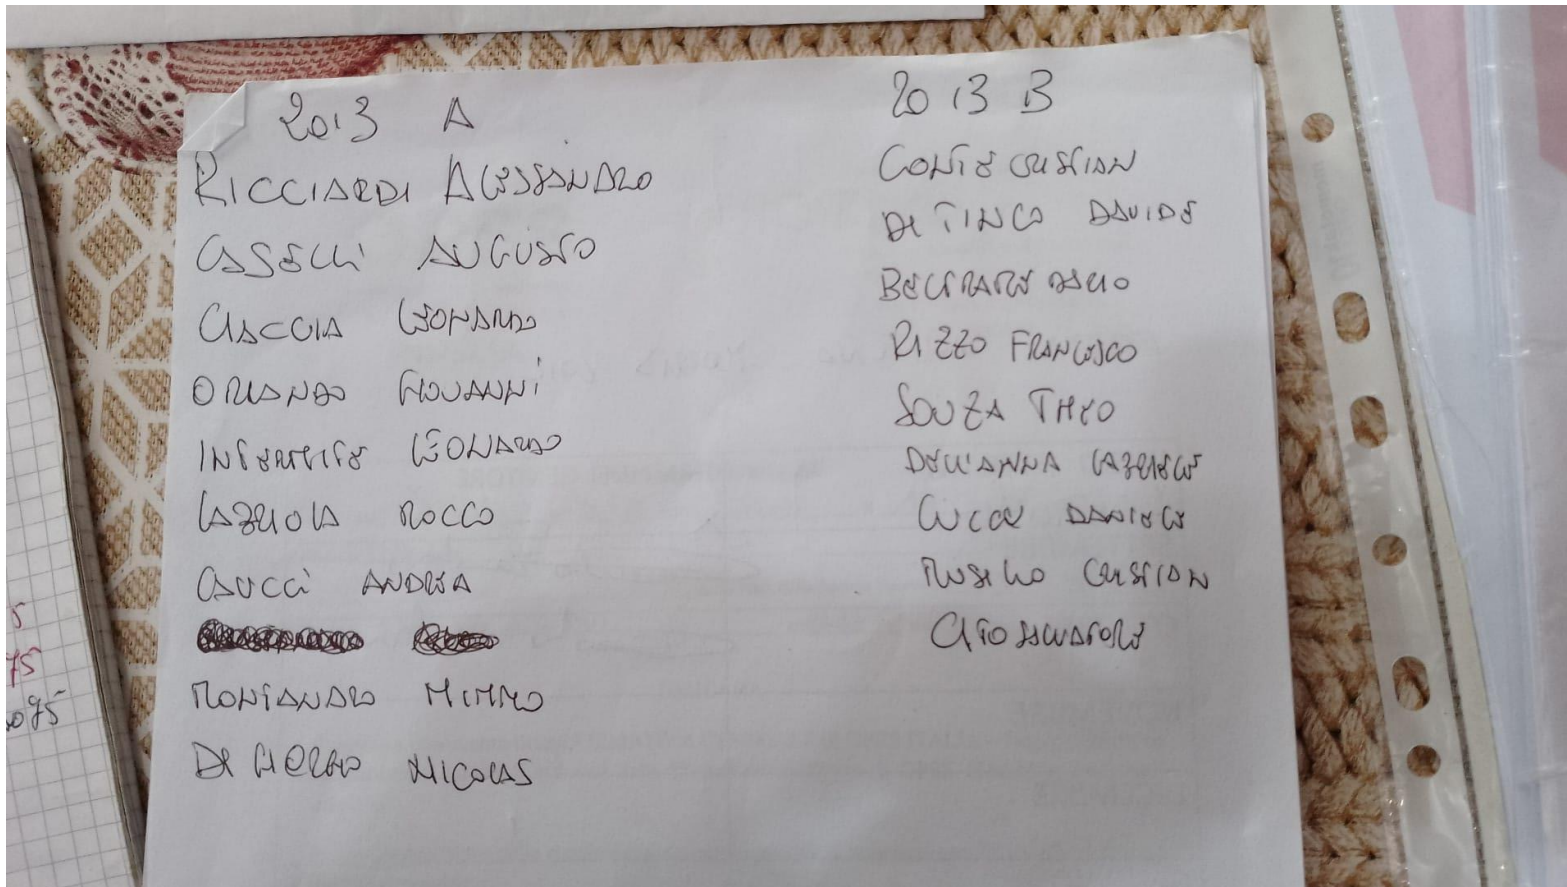 2013 A
RICCIARDI ALESSANDRO
CASELLI AUGUSTO
CIACCIA LEONARDO
ORLANDO GIOVANNI
LEONARDO
LAZZIOLA ROCCO
CAUCCI ANDREA
MONTANARO MIMMO
DE NICOLAS
2013 B
CONTE CRISTIAN
DE TINCO DAVIDE
BELFRATE DARIO
RIZZO FRANCESCO
SOUZA THEO
DELL'ANNA GABRIELE
DANIELE
MUSILLO CRISTIAN
CITO SALVATORE
75